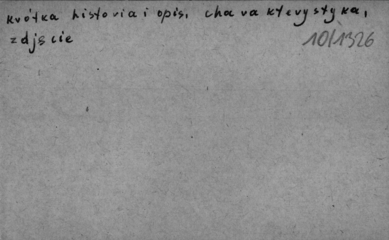 krótka historia i opis, charakterystyka,
zdjęcie
10/1326